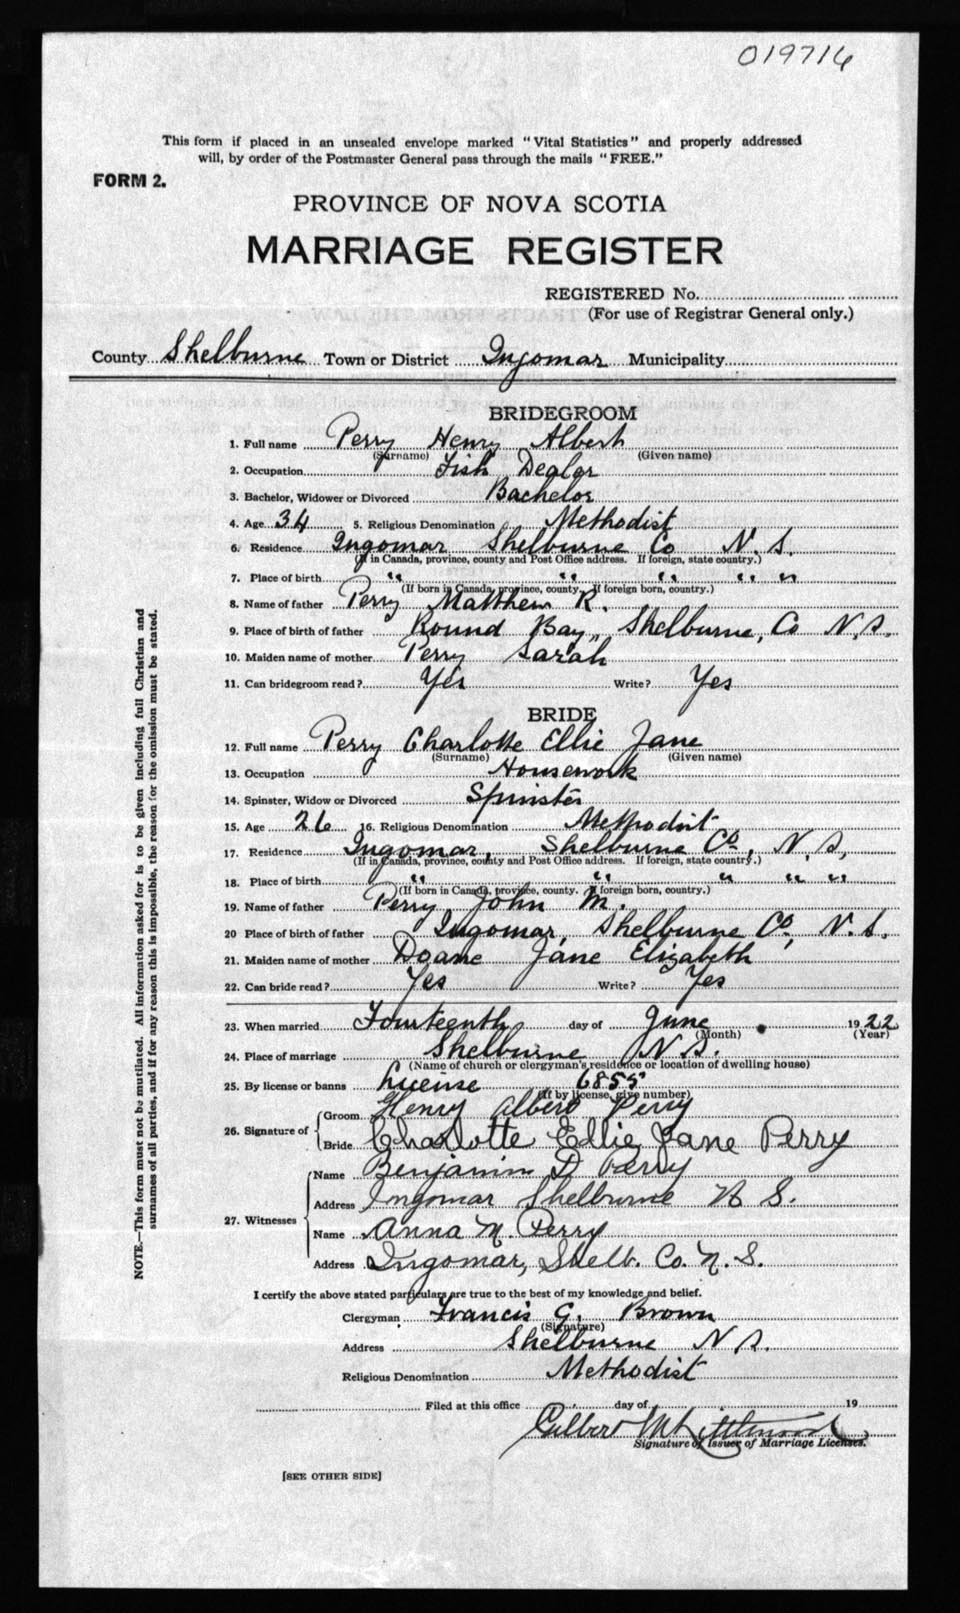 019716
This form if placed in an unsealed envelope marked "Vital Statistics" and properly addressed
will, by order of the Postmaster General pass through the mails "FREE."
FORM 2.
PROVINCE OF NOVA SCOTIA
MARRIAGE REGISTER
REGISTERED No.
(For use of Registrar General only.)
County Shelburne Town or District Ingomar Municipality
BRIDEGROOM
1. Full name Perry Henry Albert
(Surname) (Given name)
2. Occupation Fish Dealer
3. Bachelor, Widower or Divorced Bachelor
4. Age 34 5. Religious Denomination Methodist
6. Residence Ingomar Shelburne Co N.S.
(If in Canada, province, county and Post Office address. If foreign, state country.)
7. Place of birth " " " " "
(If born in Canada, province, county. If foreign born, country.)
8. Name of father Perry Matthew R.
9. Place of birth of father Round Bay, Shelburne, Co N.S.
10. Maiden name of mother Perry Sarah
11. Can bridegroom read? Yes Write? Yes
BRIDE
12. Full name Perry Charlotte Ellie Jane
(Surname) (Given name)
13. Occupation Housework
14. Spinster, Widow or Divorced Spinster
15. Age 26 16. Religious Denomination Methodist
17. Residence Ingomar, Shelburne Co, N.S,
(If in Canada, province, county and Post Office address. If foreign, state country.)
18. Place of birth " " " " "
(If born in Canada, province, county. If foreign born, country.)
19. Name of father Perry John M.
20 Place of birth of father Ingomar, Shelburne Co, N.S.
21. Maiden name of mother Doane Jane Elizabeth
22. Can bride read? Yes Write? Yes
23. When married Fourteenth day of June 1922
(Month) (Year)
24. Place of marriage Shelburne N.S.
(Name of church or clergyman's residence or location of dwelling house)
25. By license or banns License 6855
(If by license, give number)
26. Signature of Groom Henry Albert Perry
Bride Charlotte Ellie Jane Perry
27. Witnesses Name Benjamin D Perry
Address Ingomar Shelburne N S.
Name Anna M. Perry
Address Ingomar, Shelb. Co. N. S.
I certify the above stated particulars are true to the best of my knowledge and belief.
Clergyman Francis G. Brown
(Signature)
Address Shelburne N.S.
Religious Denomination Methodist
Filed at this office day of 19
Gilbert
Signature of Issuer of Marriage Licenses.
[SEE OTHER SIDE]
NOTE.—This form must not be mutilated. All information asked for is to be given including full Christian and
surnames of all parties, and if for any reason this is impossible, the reason for the omission must be stated.